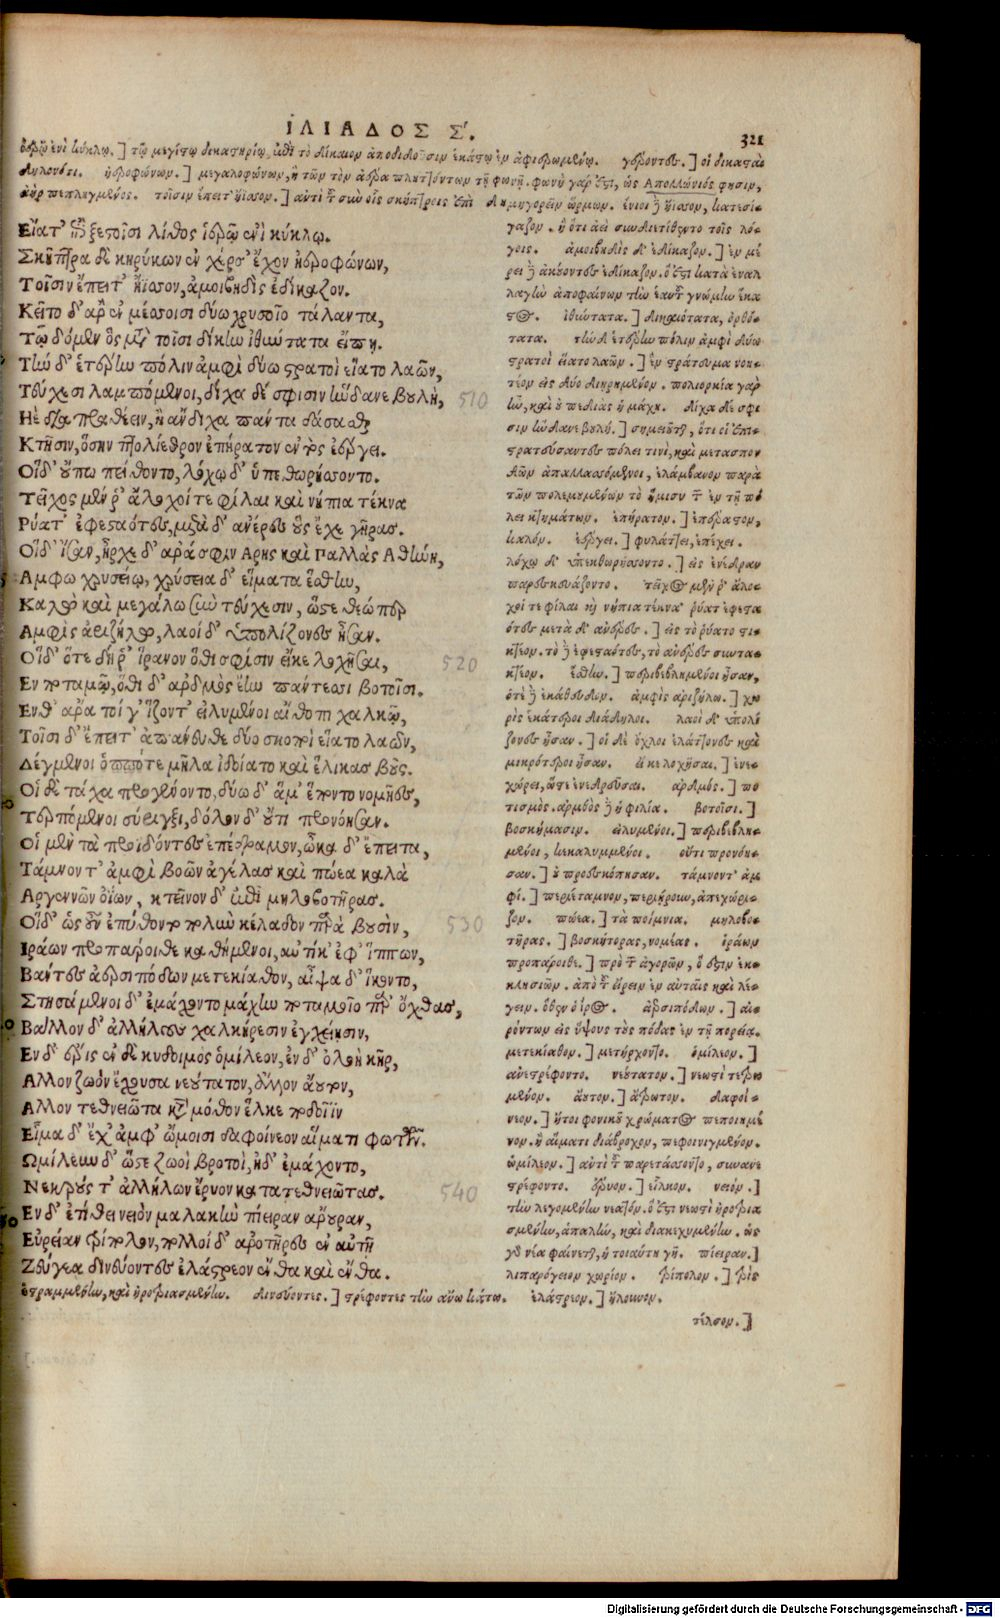 ΙΛΙΑΔΟΣ Σ.
321
ἱερῷ ἐνὶ κύκλῳ.] τῷ μεγίστῳ δικαστηρίῳ, ἐπὶ τὸ δίκαιον ἀποδιδοῦσιν ἑκάστῳ ἐν ἀφιερωμένῳ. γέροντες.] οἱ δικασταὶ
δηλονότι. ἠεροφώνων.] μεγαλοφώνων, ἢ τῶν τὸν ἀέρα πληττόντων τῇ φωνῇ. φωνὴ γάρ ἐστι, ὥς Απολλώνιός φησιν,
ἀὴρ πεπληγμένος. τοῖσιν ἔπειτ' ἤϊσσον.] ἀντὶ τοῦ σὺν οἷς σκήπτροις ἐπὶ δημηγορεῖν ὥρμων. ἔνιοι δὲ ἤισσον, κατεσί-
Εἵατ' ἐπὶ ξεστοῖσι λίθοις ἱερῷ ἐνὶ κύκλῳ.
Σκῆπτρα δὲ κηρύκων ἐν χέρσ' ἔχον ἠεροφώνων,
Τοῖσιν ἔπειτ' ἤϊσσον, ἀμοιβηδὶς ἐδίκαζον.
Κεῖτο δ' ἄρ' ἐν μέσσοισι δύω χρυσοῖο τάλαντα,
Τῷ δόμεν ὃς μετὰ τοῖσι δίκην ἰθυώτατα εἴπῃ.
Τὴν δ' ἑτέρην πόλιν ἀμφὶ δύω στρατοὶ εἵατο λαῶν,
Τεύχεσι λαμπόμενοι, δίχα δέ σφισιν ἥνδανε βουλὴ,
510
Ηὲ διαπραθέειν, ἢ ἄνδιχα πάντα δάσασθαι
Κτῆσιν, ὅσην πτολίεθρον ἐπήρατον ἐντὸς ἐέργει.
Οἱ δ' οὔπω πείθοντο, λόχῳ δ' ὑπεθωρήσσοντο.
Τεῖχος μέν ῥ' ἄλοχοί τε φίλαι καὶ νήπια τέκνα
Ρύατ' ἐφεσταότες, μετὰ δ' ἀνέρες οὓς ἔχε γῆρας.
Οἱ δ' ἴσαν, ἦρχε δ' ἄρά σφιν Αρης καὶ Παλλὰς Αθήνη,
Αμφω χρυσείω, χρύσεια δ' εἵματα ἕσθην,
Καλὼ καὶ μεγάλω σὺν τεύχεσιν, ὥστε θεώ περ
Αμφὶς ἀριζήλω, λαοὶ δ' ὑπολίζονες ἦσαν.
Οἱ δ' ὅτε δή ῥ' ἵκανον ὅθι σφίσιν εἶκε λοχῆσαι,
520
Εν ποταμῷ, ὅθι δ' ἀρδμὸς ἔην πάντεσσι βοτοῖσι.
Ενθ' ἄρα τοί γ' ἵζοντ' εἰλυμένοι αἴθοπι χαλκῷ,
Τοῖσι δ' ἔπειτ' ἀπάνευθε δύο σκοποὶ εἵατο λαῶν,
Δέγμενοι ὁππότε μῆλα ἰδοίατο καὶ ἕλικας βοῦς.
Οἱ δὲ τάχα προγένοντο, δύω δ' ἅμ' ἕποντο νομῆες,
Τερπόμενοι σύριγξι, δόλον δ' οὔτι προνόησαν.
Οἱ μὲν τὰ προϊδόντες ἐπέδραμον, ὦκα δ' ἔπειτα,
Τάμνοντ' ἀμφὶ βοῶν ἀγέλας καὶ πώεα καλὰ
Αργεννῶν ὀΐων, κτεῖνον δ' ἐπὶ μηλοβοτῆρας.
Οἱ δ' ὡς οὖν ἐπύθοντο πολὺν κέλαδον παρὰ βουσὶν,
530
Ιράων προπάροιθε καθήμενοι, αὐτίκ' ἐφ' ἵππων,
Βάντες ἀερσιπόδων μετεκίαθον, αἶψα δ' ἵκοντο,
Στησάμενοι δ' ἐμάχοντο μάχην ποταμοῖο παρ' ὄχθας,
Βάλλον δ' ἀλλήλους χαλκήρεσιν ἐγχείῃσιν,
Εν δ' ἔρις ἐν δὲ κυδοιμὸς ὁμίλεον, ἐν δ' ὀλοὴ κὴρ,
Αλλον ζωὸν ἔχουσα νεούτατον, ἄλλον ἄουτον,
Αλλον τεθνειῶτα κατὰ μόθον ἕλκε ποδοῖϊν
Εἷμα δ' ἔχ' ἀμφ' ὤμοισι δαφοίνεον αἵματι φωτῶν.
Ωμίλευν δ' ὥστε ζωοὶ βροτοὶ, ἠδ' ἐμάχοντο,
Νεκρούς τ' ἀλλήλων ἔρυον κατατεθνειῶτας.
540
Εν δ' ἐτίθει νειὸν μαλακὴν πίειραν ἄρουραν,
Εὐρεῖαν τρίπολον, πολλοὶ δ' ἀροτῆρες ἐν αὐτῇ
Ζεύγεα δινεύοντες ἐλάστρεον ἔνθα καὶ ἔνθα.
γαζον. ἢ ὅτι ἀεὶ συνδιετίθεντο τοῖς λό-
γοις. ἀμοιβηδὶς δ' ἐδίκαζον.] ἐν μέ
ρει δὲ ἀκούοντες ἐδίκαζον. ὅ ἐστι κατὰ ἐναλ
λαγὴν ἀποφαίνων τὴν ἑαυτοῦ γνώμην ἕκα
στος. ἰθύντατα.] δικαιότατα, ὀρθό-
τατα. τὴν δ' ἑτέρην πόλιν ἀμφὶ δύω
στρατοὶ εἵατο λαῶν.] ἓν στράτευμα νοη-
τέον εἰς δύο διῃρημένον. πολιορκία γὰρ
ἦν, καὶ οὐ πεδιὰς ἡ μάχη. δίχα δέ σφι
σιν ἥνδανε βουλή.] σημειοῦται, ὅτι οἱ ἐπι-
στρατεύσαντες πόλει τινὶ, καὶ μετὰ σπον
δῶν ἀπαλλασσόμενοι, ἐλάμβανον παρὰ
τῶν πολεμουμένων τὸ ἥμισυ τῶν ἐν τῇ πό
λει κτημάτων. ἐπήρατον.] ἐπέραστον,
καλόν. ἐέργει.] φυλάττει, ἐπέχει.
λόχῳ δ' ὑπεθωρήσσοντο.] εἰς ἐνέδραν
παρεσκευάζοντο. τεῖχος μέν ῥ' ἄλο-
χοί τε φίλαι καὶ νήπια τέκνα ῥύατ' ἐφεστα
ότες μετὰ δ' ἀνέρες.] εἰς τὸ ῥύατο στι-
κτέον. τὸ δὲ ἐφεσταότες, τὸ ἀνέρες συντα-
κτέον. ἕσθην.] περιβεβλημένοι ἦσαν,
ὅτε δὲ ἐκάθευδον. ἀμφὶς ἀριζήλω.] χω
ρὶς ἑκάτεροι διάδηλοι. λαοὶ δ' ὑπολί
ζονες ἦσαν.] οἱ δὲ ὄχλοι ἐλάττονες καὶ
μικρότεροι ἦσαν. εἶκε λοχῆσαι.] ἐνε-
χώρει, ὥστε ἐνεδρεῦσαι. ἀρδμός.] πο
τισμός. ἀρθμὸς δὲ ἡ φιλία. βοτοῖσι.]
βοσκήμασιν. εἰλυμένοι.] περιβεβλη-
μένοι, κεκαλυμμένοι. οὔτι προνόη-
σαν.] οὐ προεσκόπησαν. τάμνοντ' ἀμ
φί.] περιέταμνον, περιῄρουν, ἀπεχώρι-
ζον. πώεα.] τὰ ποίμνια. μηλοβο-
τῆρας.] βοσκήτορας, νομέας. ἱράων
προπάροιθε.] πρὸ τῶν ἀγορῶν, ὅ ἐστιν ἐκ-
κλησιῶν. ἀπὸ τοῦ εἴρειν ἐν αὐταῖς καὶ λέ-
γειν. ὅθεν ὁ ἶρος. ἀερσιπόδων.] αἰ-
ρόντων εἰς ὕψους τοὺς πόδας ἐν τῇ πορείᾳ.
μετεκίαθον.] μετήρχοντο. ὁμίλεον.]
ἀνεστρέφοντο. νεούτατον.] νεωστὶ τετρω
μένον. ἄουτον.] ἄτρωτον. δαφοί-
νεον.] ἤτοι φονικοῦ χρώματος πεποιημέ
νον. ἢ αἵματι διάβροχον, πεφοινιγμένον.
ὡμίλεον.] ἀντὶ τοῦ παρετάσσοντο, συνανε
στρέφοντο. ἔρυον.] εἷλκον. νειόν.]
τὴν λεγομένην νεατόν. ὅ ἐστι νεωστὶ ἠροτρια
σμένην, ἁπαλὴν, καὶ διακεχυμένην. ὡς
γὰρ νέα φαίνεται, ἡ τοιαύτη γῆ. πίειραν.]
λιπαρόγειον χωρίον. τρίπολον.] τρὶς
ἐστραμμένην, καὶ ἠροτριασμένην. δινεύοντες.] στρέφοντες τὴν ἄνω κάτω. ἐλάστρεον.] ἤλαυνον.
τέλσον.]
Digitalisierung gefördert durch die Deutsche Forschungsgemeinschaft - DFG